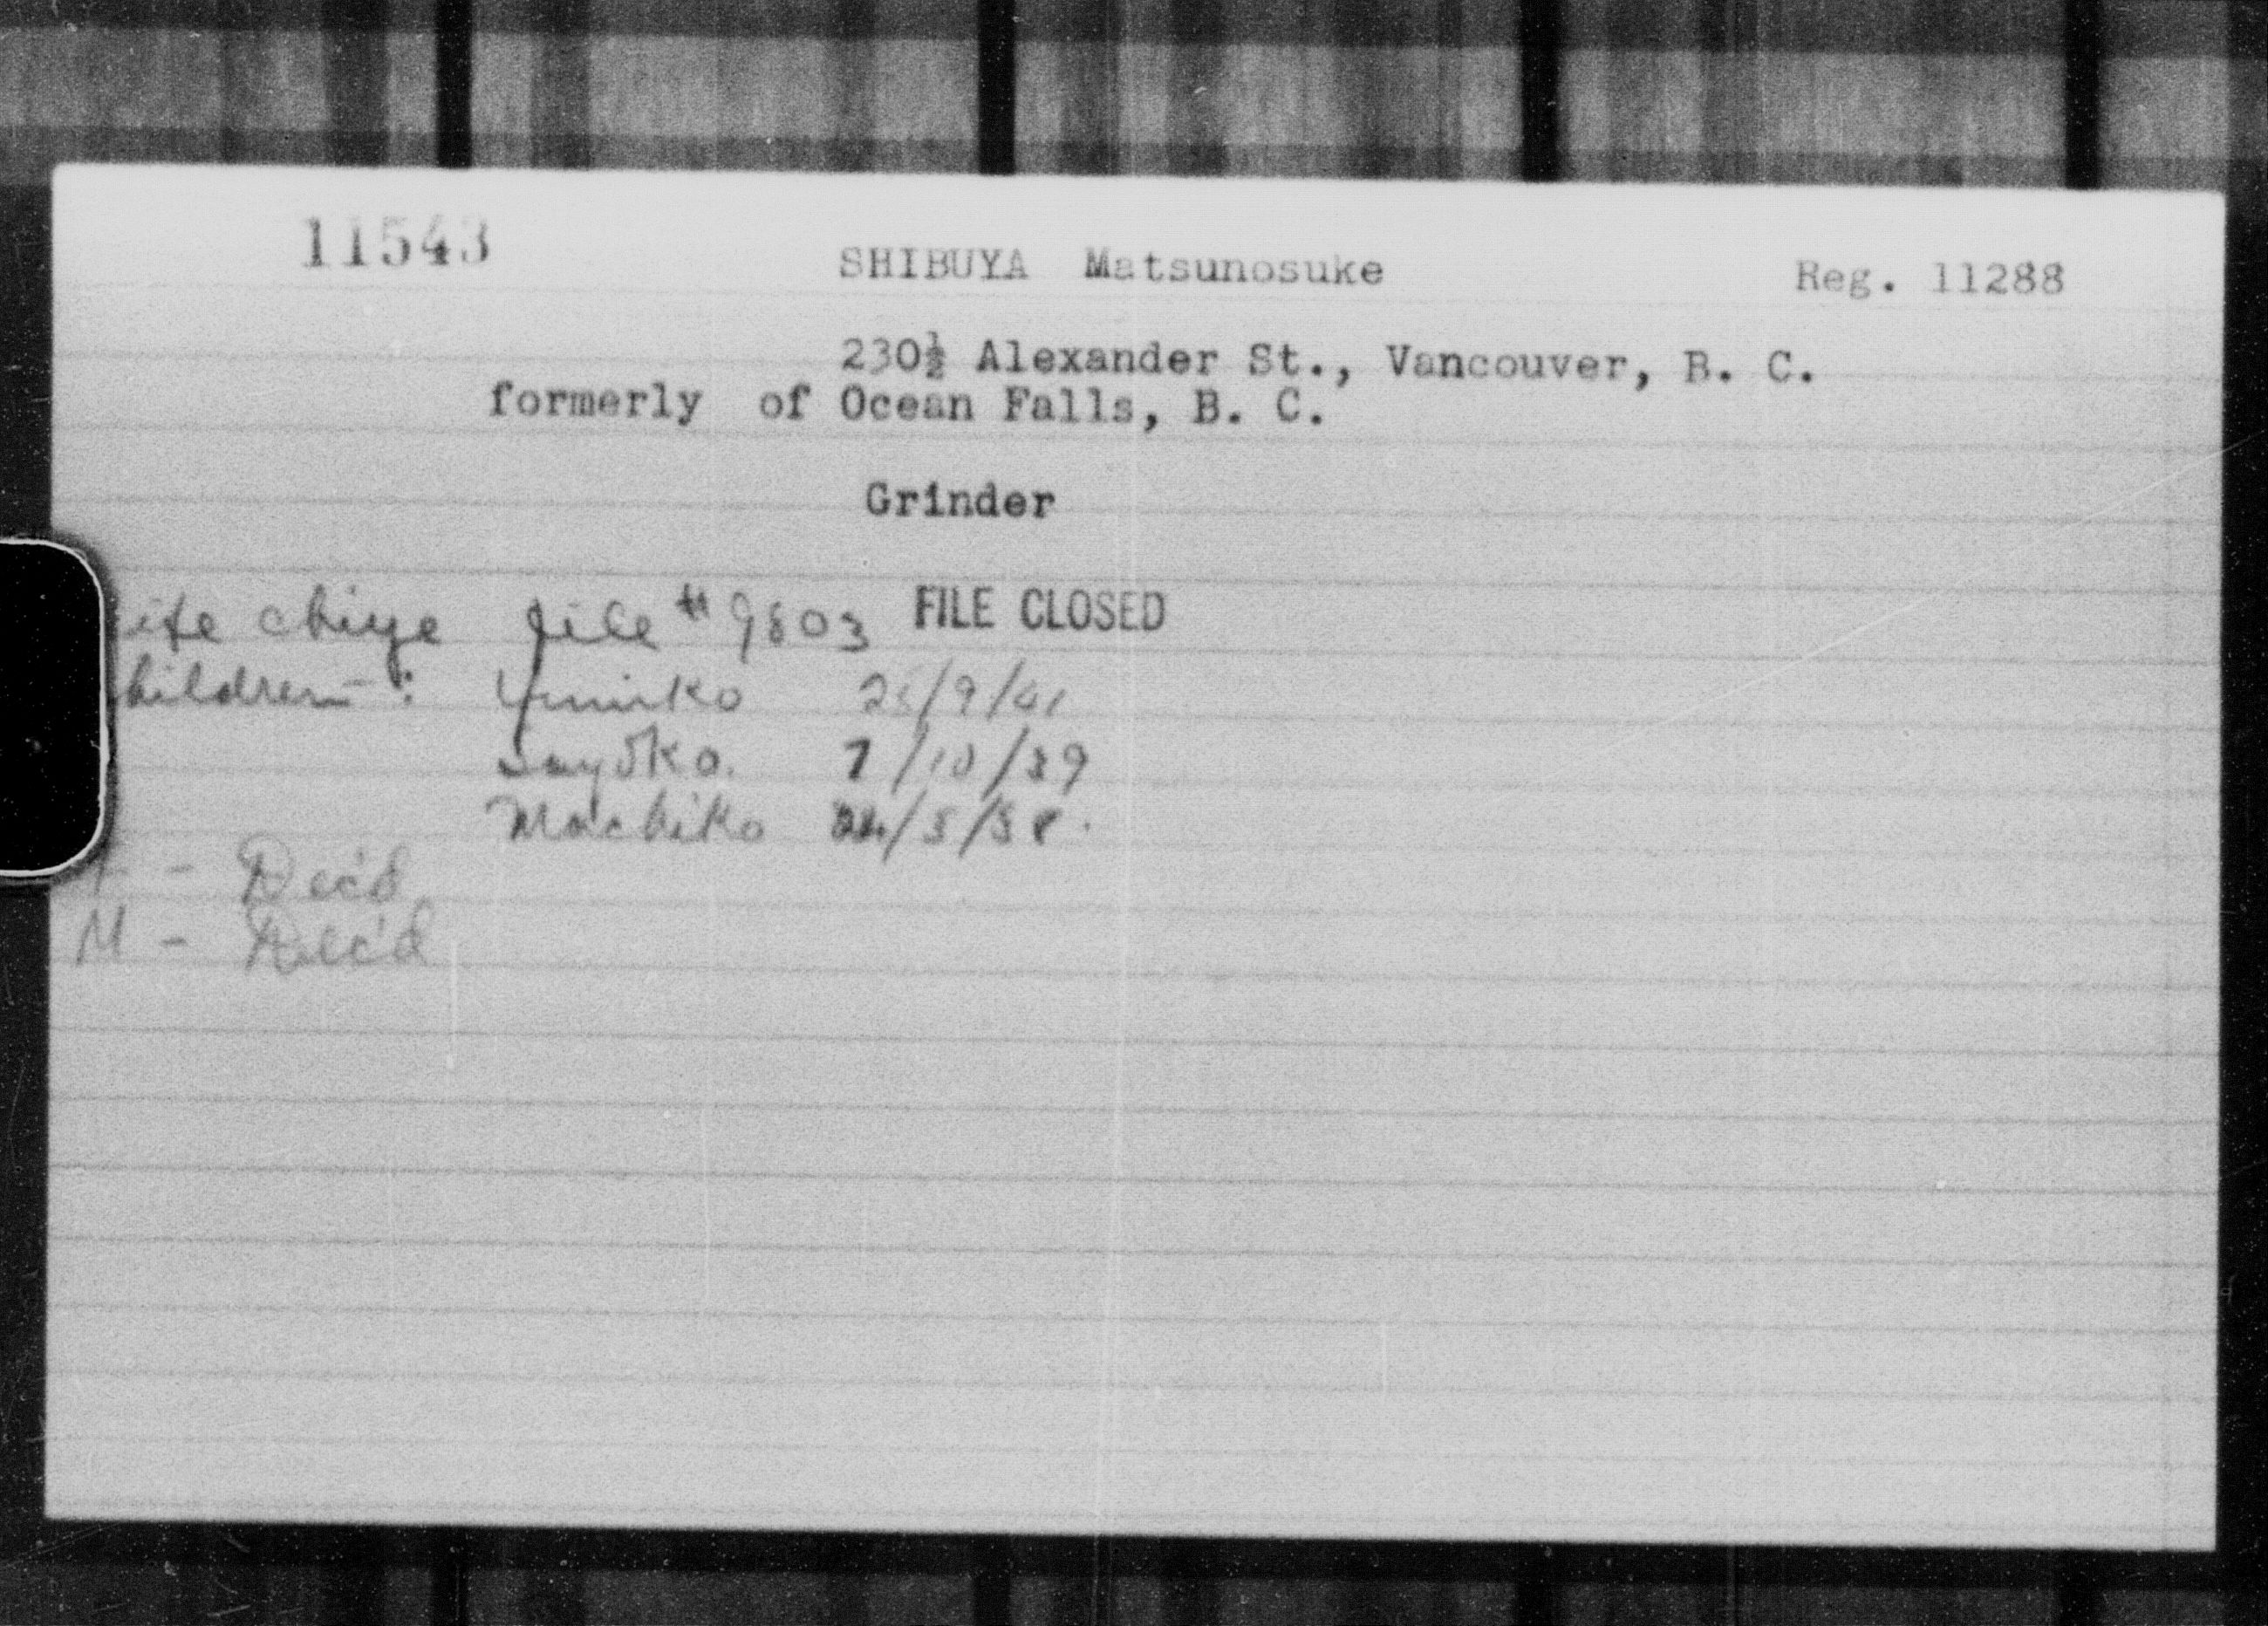 11543 SHIBUYA Matsunosuke Reg. 11288
230½ Alexander St., Vancouver, B. C.
formerly of Ocean Falls, B. C.
Grinder
ife chiye file #9803 FILE CLOSED
hildren: 9/41
Sayoko. 7/10/39
Machiko
- Dec'd
M - Dec'd